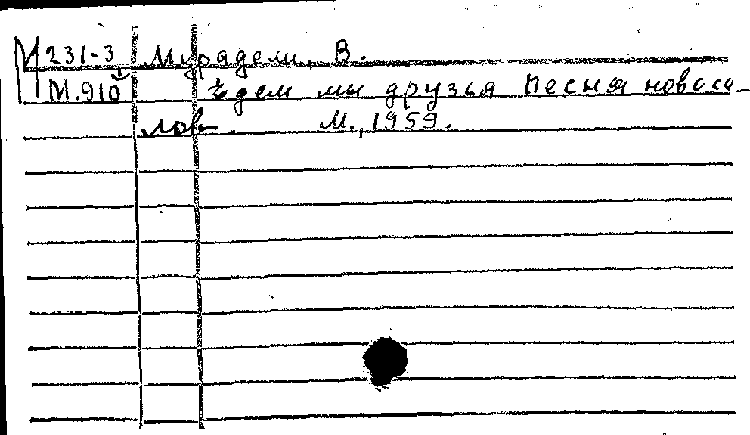 М 231-3 Мурадели, В.
М.910 Едем мы друзья Песня новосе-
лов. М., 1959.